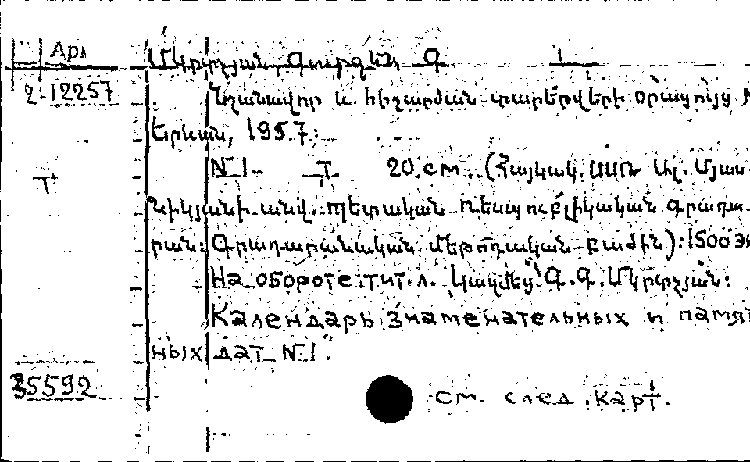 Арл Մկրտչյան, Գուրգեն Գ 1
2-12257 Նշանավոր և հիշարժան տարեթվերի օրացույց
Երևան, 1957.
N 1. Т 20 cm. (Հայկակ. ՍՍՌ Ալ. Մյաս-
նիկյանի անվ. պետական ռեսպուբլիկական գրադա-
րան: Գրադարանական մեթոդական բաժին): 1500
На обороте тит. л. Կազմեց Գ. Գ. Մկրտչյան:
Календарь знаменательных и памят
ных дат N 1.
35592 см. след. карт.